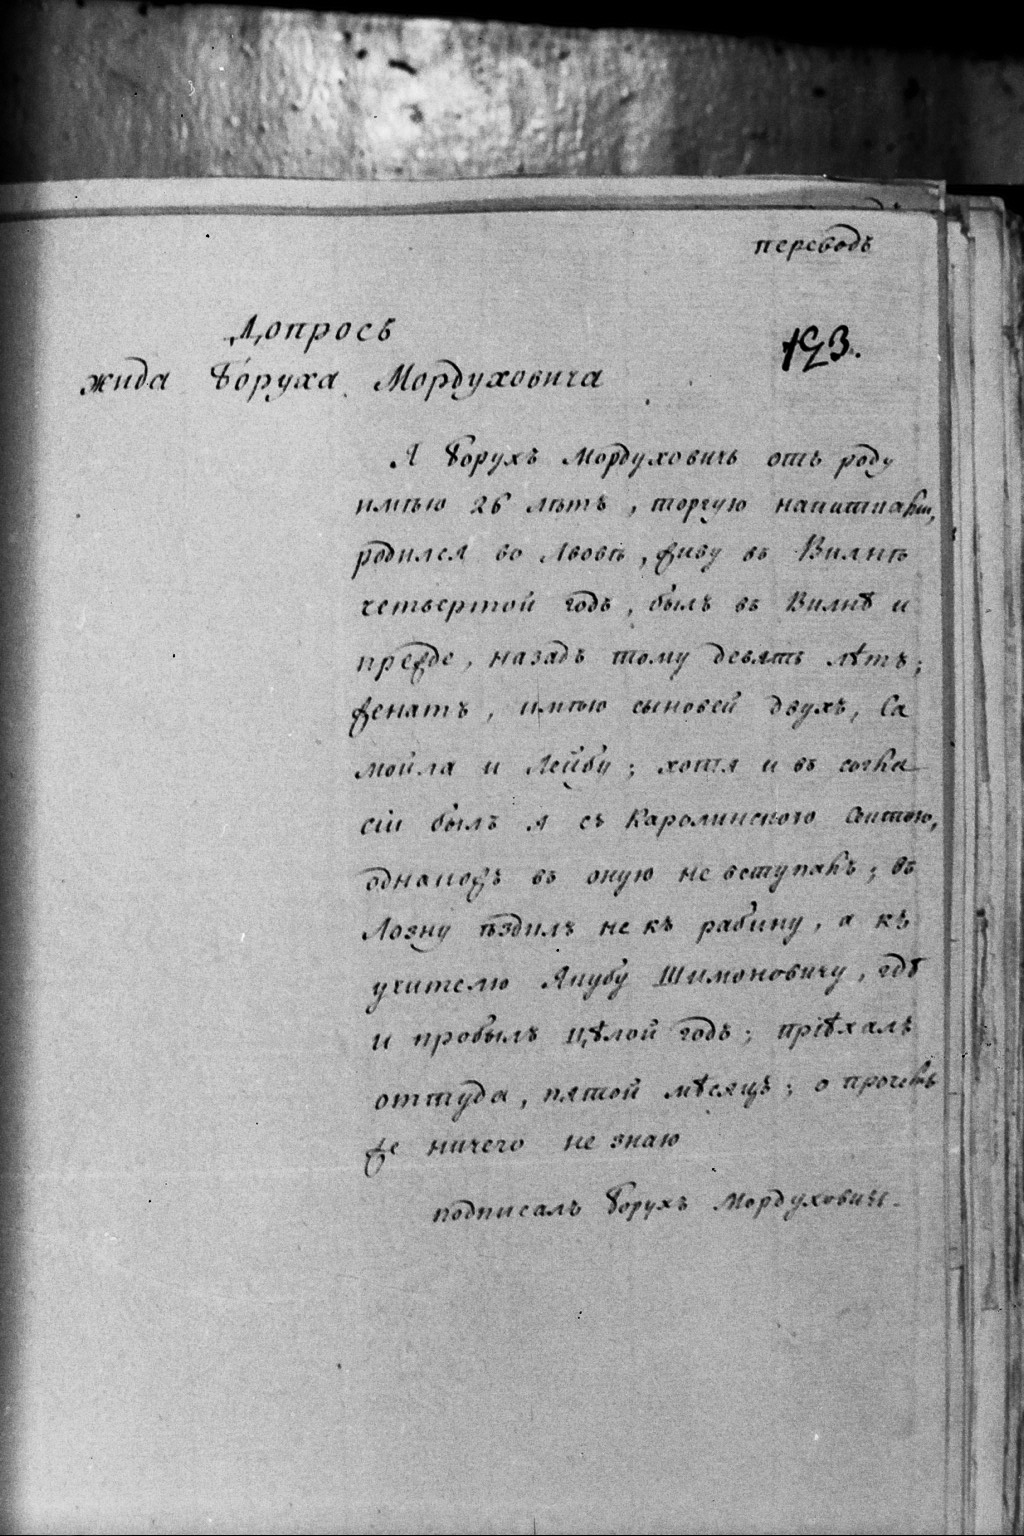 переводъ
Допросъ
193.
жида Боруха Мордуховича
Я Борухъ Мордуховичь отъ роду
имѣю 26 лѣтъ, торгую напитками,
родился во Львовѣ, живу въ Вилнѣ
четвертой годъ, былъ въ Вилнѣ и
прежде, назадъ тому девять лѣтъ;
женатъ, имѣю сыновей двухъ, Са
мойла и Лейбу; хотя и въ согла
сіи былъ я съ Каролинского сектою,
однакожъ въ оную не вступалъ; въ
Лозну ѣздилъ не къ рабину, а къ
учителю Якубу Шимоновичу, гдѣ
и пробылъ цѣлой годъ; пріѣхалъ
оттуда, пятой мѣсяцъ; о прочемъ
же ничего не знаю
подписалъ Борухъ Мордуховичь.